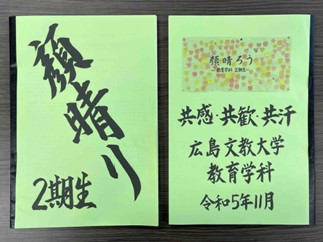 顔晴り
2期生
顔晴ろう
共感・共歓・共汗
広島文教大学
教育学科
令和5年11月